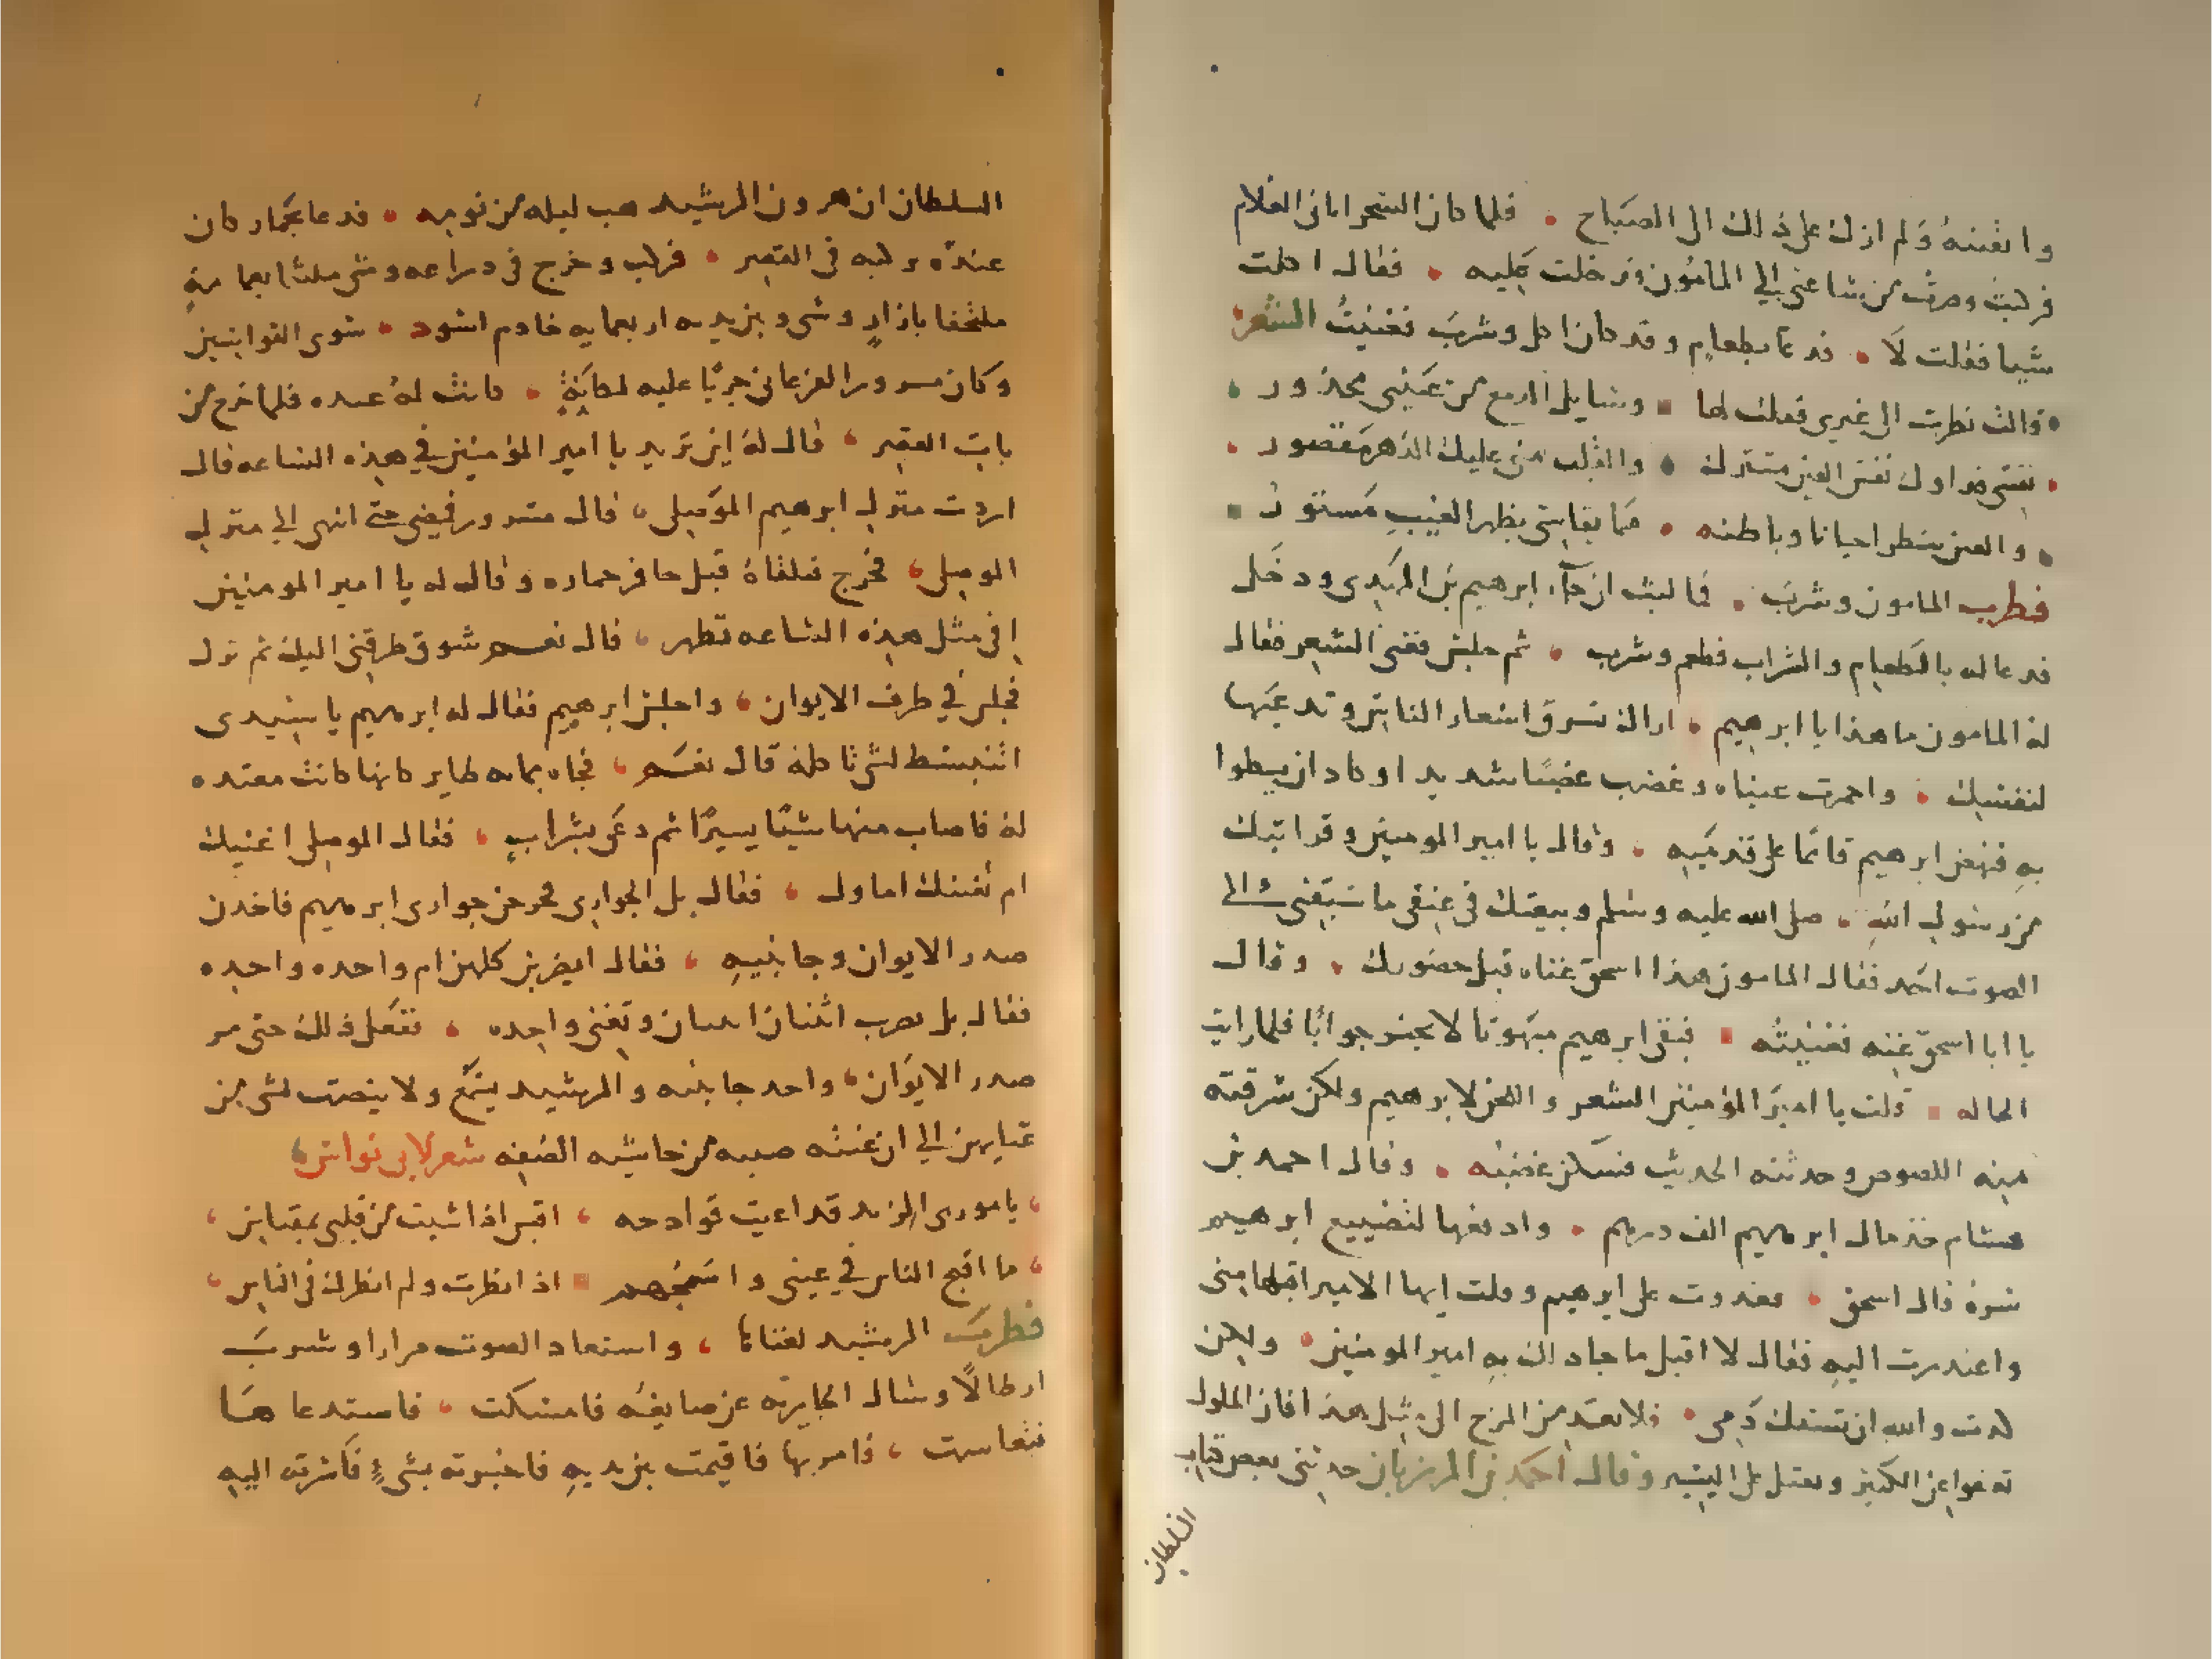 واتقنته ولم ازل على ذلك الى الصباح • فلما كان السحر اتانى الغلام
فركبت وصرت من ساعتى الى المامون فدخلت عليه • فقال اكلت
شيا فقلت لا • فدعا بطعام وقد كان اكل وشرب فغنيت الشعر
قالت نظرت الى غيرى فقلت لها • وسايل الدمع من عينى محذور
نفسى فداوك نفس العين مشتركة • والقلب منى عليك الدهر مقصور
والعين تنظر احيانا وباطنه • مما يقاسى بظهر الغيب مستور
فطرب المامون وشرب • فما لبث ان جاء ابرهيم بن المهدى ودخل
فدعا له بالطعام والشراب فطعم وشرب • ثم جلس فغنى الشعر فقال
له المامون ما هذا يا ابرهيم • اراك تسرق اشعار الناس وتدعيها
لنفسك • واحمرت عيناه وغضب غضبًا شديدا وكاد ان يسطوا
به فنهض ابرهيم قائما على قدميه • وقال يا امير المومنين وقرابتك
من رسول الله • صلى الله عليه وسلم وبيعتك فى عنقى ما سبقنى الى
الصوت احد فقال المامون هذا اسحق غناه قبل حضورك • وقال
يا ابا اسحق غنه فغنيته • فبقى ابرهيم مبهوتا لا يحير جوابًا فلما رايت
الحاله • قلت يا امير المؤمنين الشعر واللحن لابرهيم ولكن سرقته
منه اللصوص وحدثته الحديث فسكن غضبه • وقال احمد بن
هشام خذ مال ابرهيم الف درهم • وادفعها لتضييع ابرهيم
سره قال اسحق • فغدوت على ابرهيم وقلت ايها الامير اقبلها منى
واعتذرت اليه فقال لا اقبل ما جاد لك به امير المومنين • ولكن
كدت والله ان تسفك دمى • فلا تعد من المزح الى مثل هذا فان الملوك
تعفوا عن الكثير وتقتل على اليسير وقال احمد بن المرزبان حدثنى بعض كتاب
السلطان
السلطان ان هرون الرشيد هب ليله من نومه • فدعا بحمار كان
عنده يركبه فى القصر • فركب وخرج فى دراعه وشى متلثما بعمامة
ملتحفا بازار وشى وبين يديه اربعمايه خادم اسود • سوى الفراشين
وكان مسرور الفرغانى جريًا عليه لمكانة • كانت له عنده فلما خرج من
باب القصر • قال له اين تريد يا امير المؤمنين في هذه الساعه قال
اردت منزل ابرهيم الموصلى • قال مسرور فمضى حتى انتهى الى منزل
الموصلى • فخرج فتلقاه قبل حافر حماره وقال له يا امير المومنين
افى مثل هذه الساعه تظهر • قال نعم شوق طرقنى اليك ثم نزل
فجلس في طرف الايوان • واجلس ابرهيم فقال له ابرهيم يا سيدى
اتنبسط لشى تاكله قال نعم • فجاه بمايه طاير كانها كانت معتده
له فاصاب منها شيًا يسيرًا ثم دعى بشراب • فقال الموصلى اغنيك
ام تغنيك اماوك • فقال بل الجوارى فخرجن جوارى ابرهيم فاخذن
صدر الايوان وجانبيه • فقال ايضربن كلهن ام واحده واحده
فقال بل تضرب اثنتان اثنتان وتغنى واحده • ففعل ذلك حتى مر
صدر الايوان • واحد جانبيه والرشيد يسمع ولا ينصت لشى من
غنايهن الى ان غنته صبيه من حاشيه الصفه شعر لابى نواس
يا مورى الزند قد اعيت قوادحه • اقبس اذا شيت من قلبى بمقباس
ما اقبح الناس في عينى واسمجهم • اذا نظرت ولم انظرك فى الناس
فطرب الرشيد لغنائها • واستعاد الصوت مرارا وشرب
ارطالًا وسال الجاريه عن صانعه فامسكت • فاستدعا هَا
فتقاعست • فامر بها فاقيمت بين يديه فاخبرته بشىءٍ فاسرته اليه